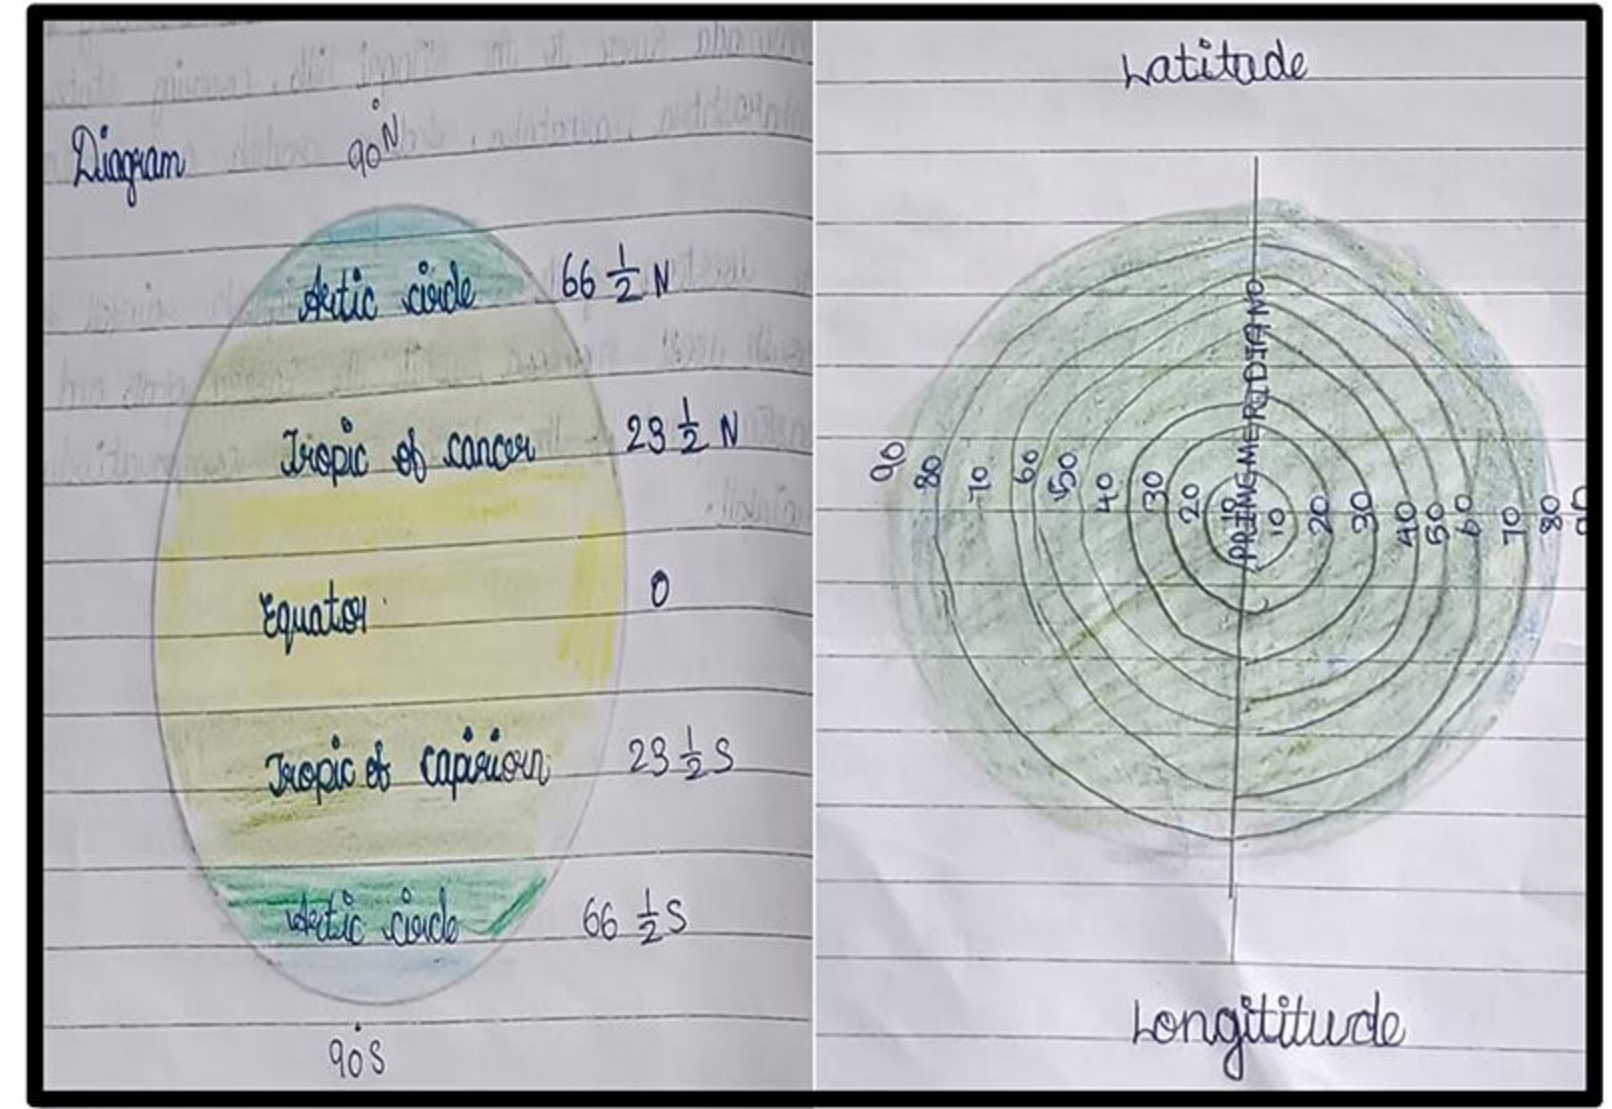 Diagram
90°N
Artic circle 66 1/2 N
Tropic of cancer 23 1/2 N
Equator 0
Tropic of capiriorn 23 1/2 S
Artic circle 66 1/2 S
90°S
Latitude
PRIME MERIDIAN 0
90 80 70 60 50 40 30 20 10 10 20 30 40 50 60 70 80 90
Longititude